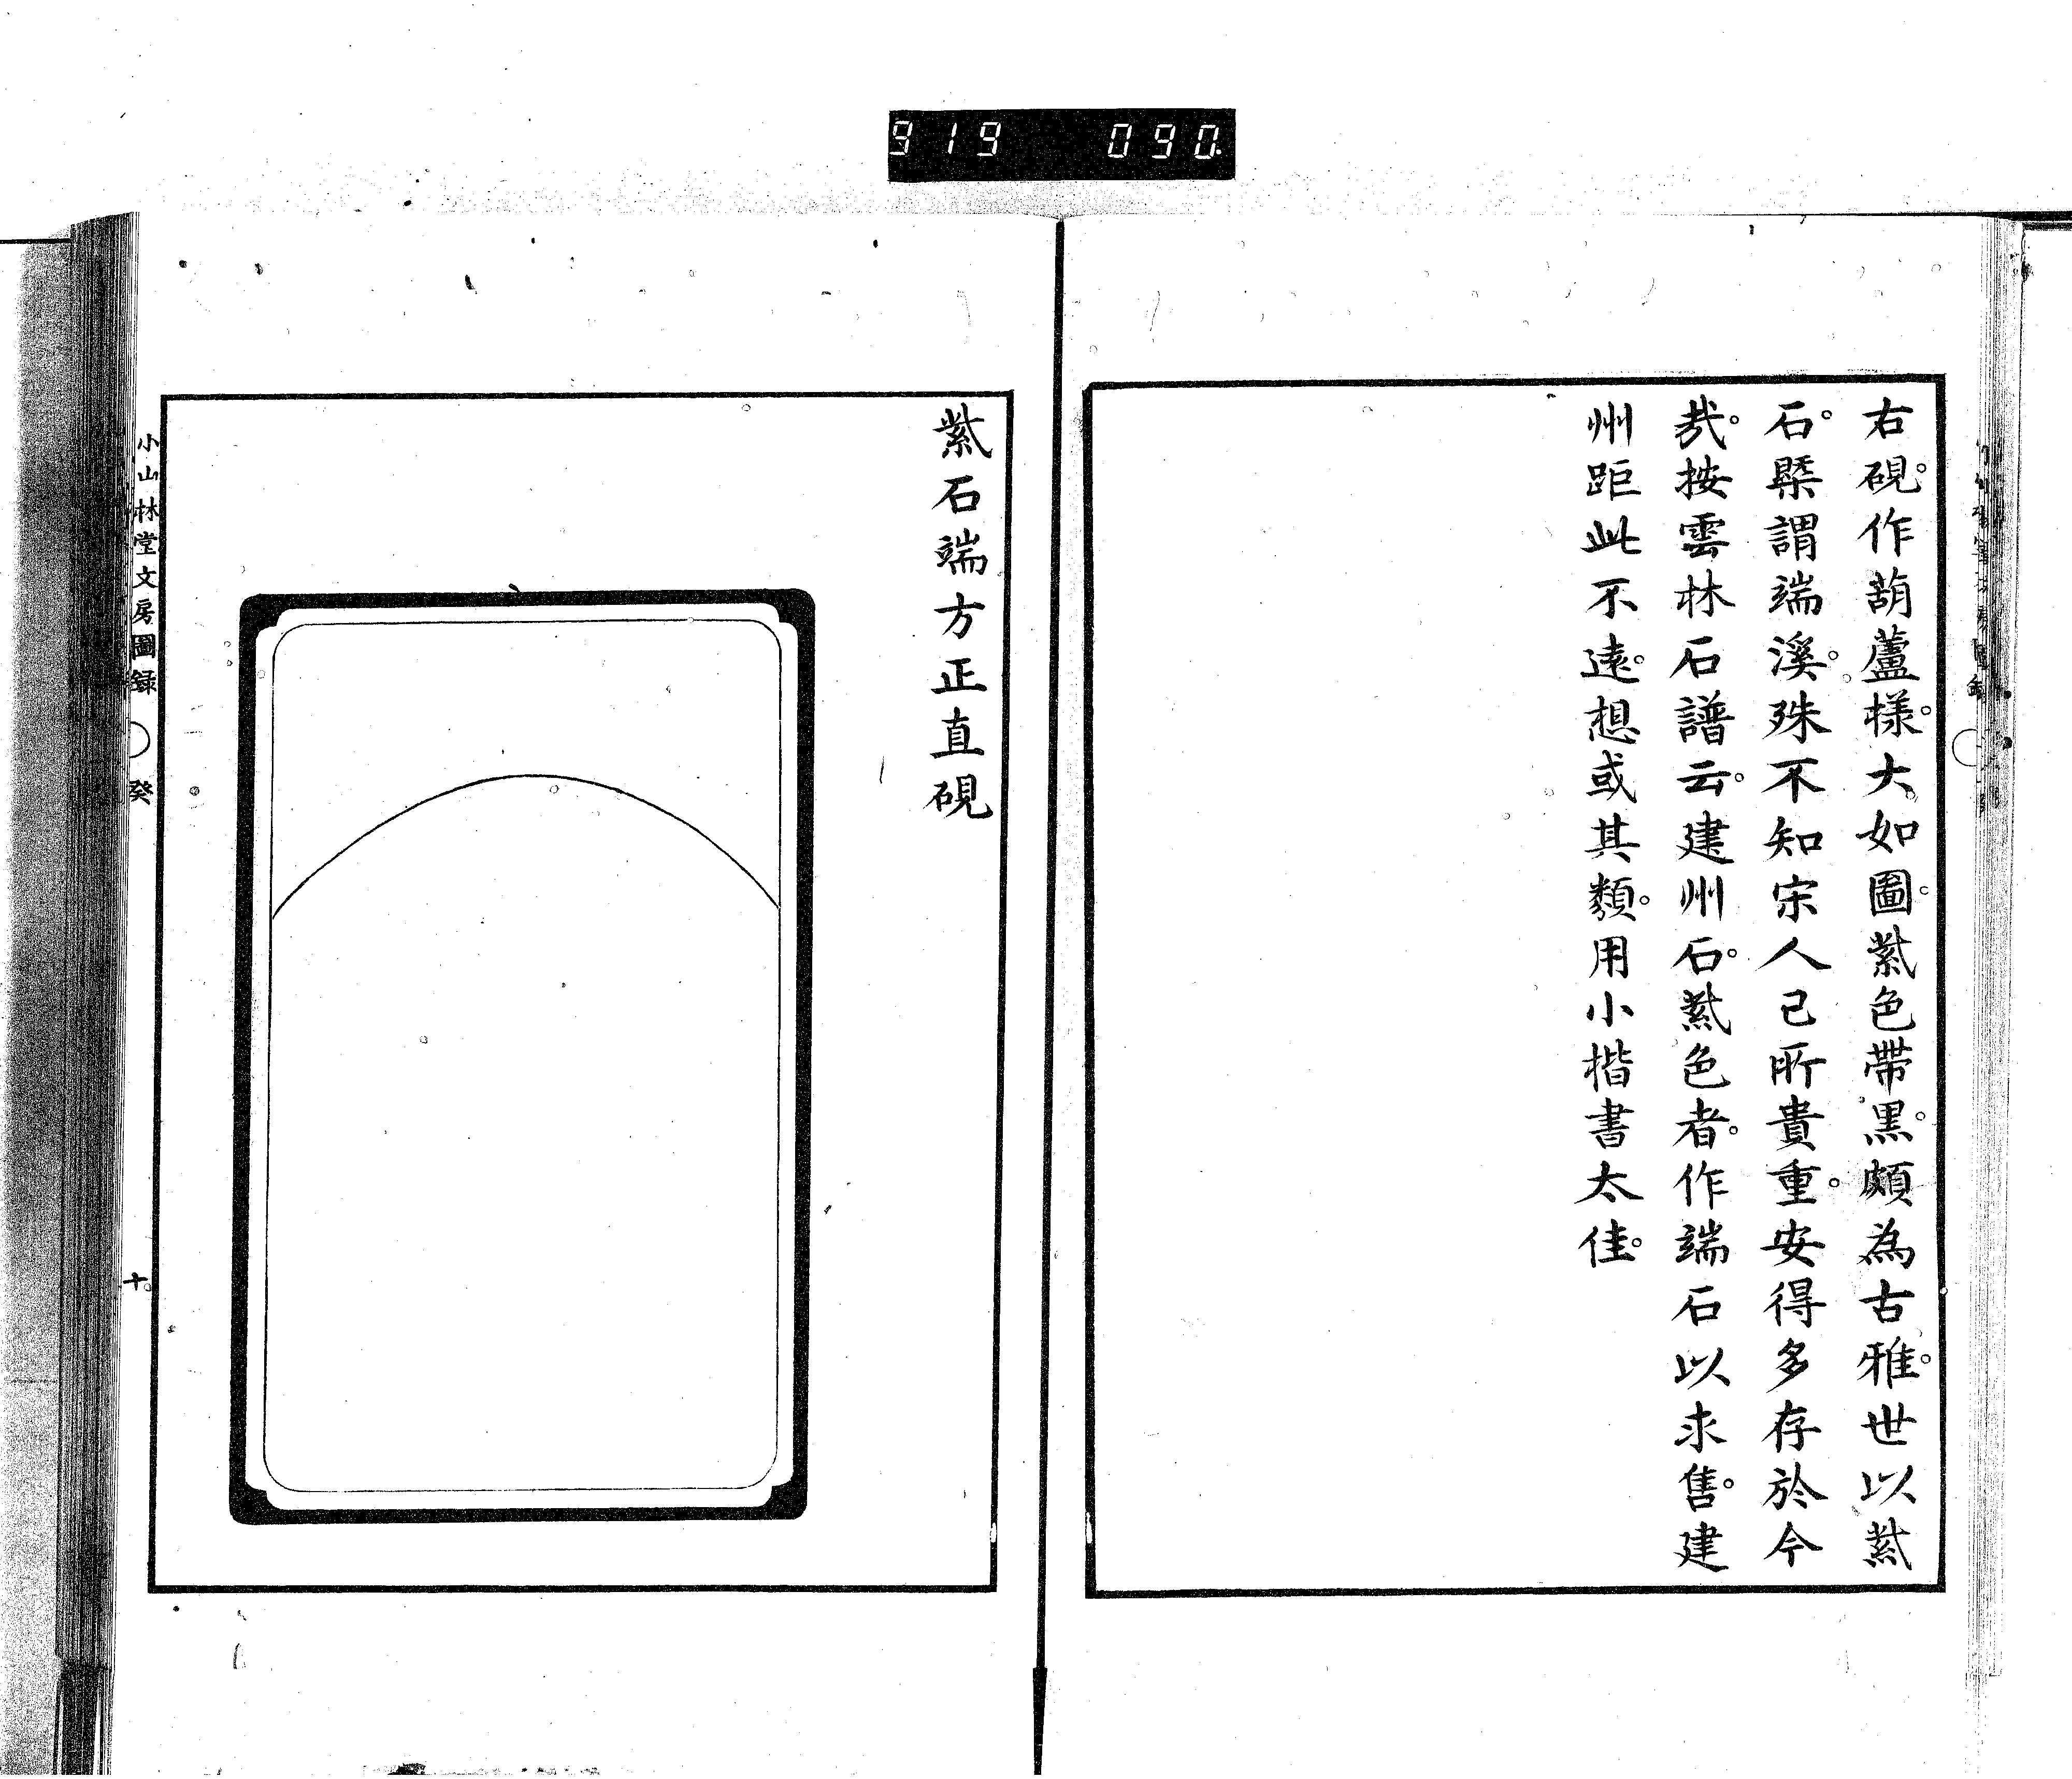 919 090.
右硯。作葫蘆樣。大如圖。紫色帶黒。頗為古雅。世以紫
石。槩謂端溪。殊不知宋人已所貴重。安得多存於今
㢤。按雲林石譜云。建州石。紫色者。作端石以求售。建
州距此不遠。想或其類。用小楷書太佳。
紫石端方正直硯
小山林堂文房圖録 癸 十